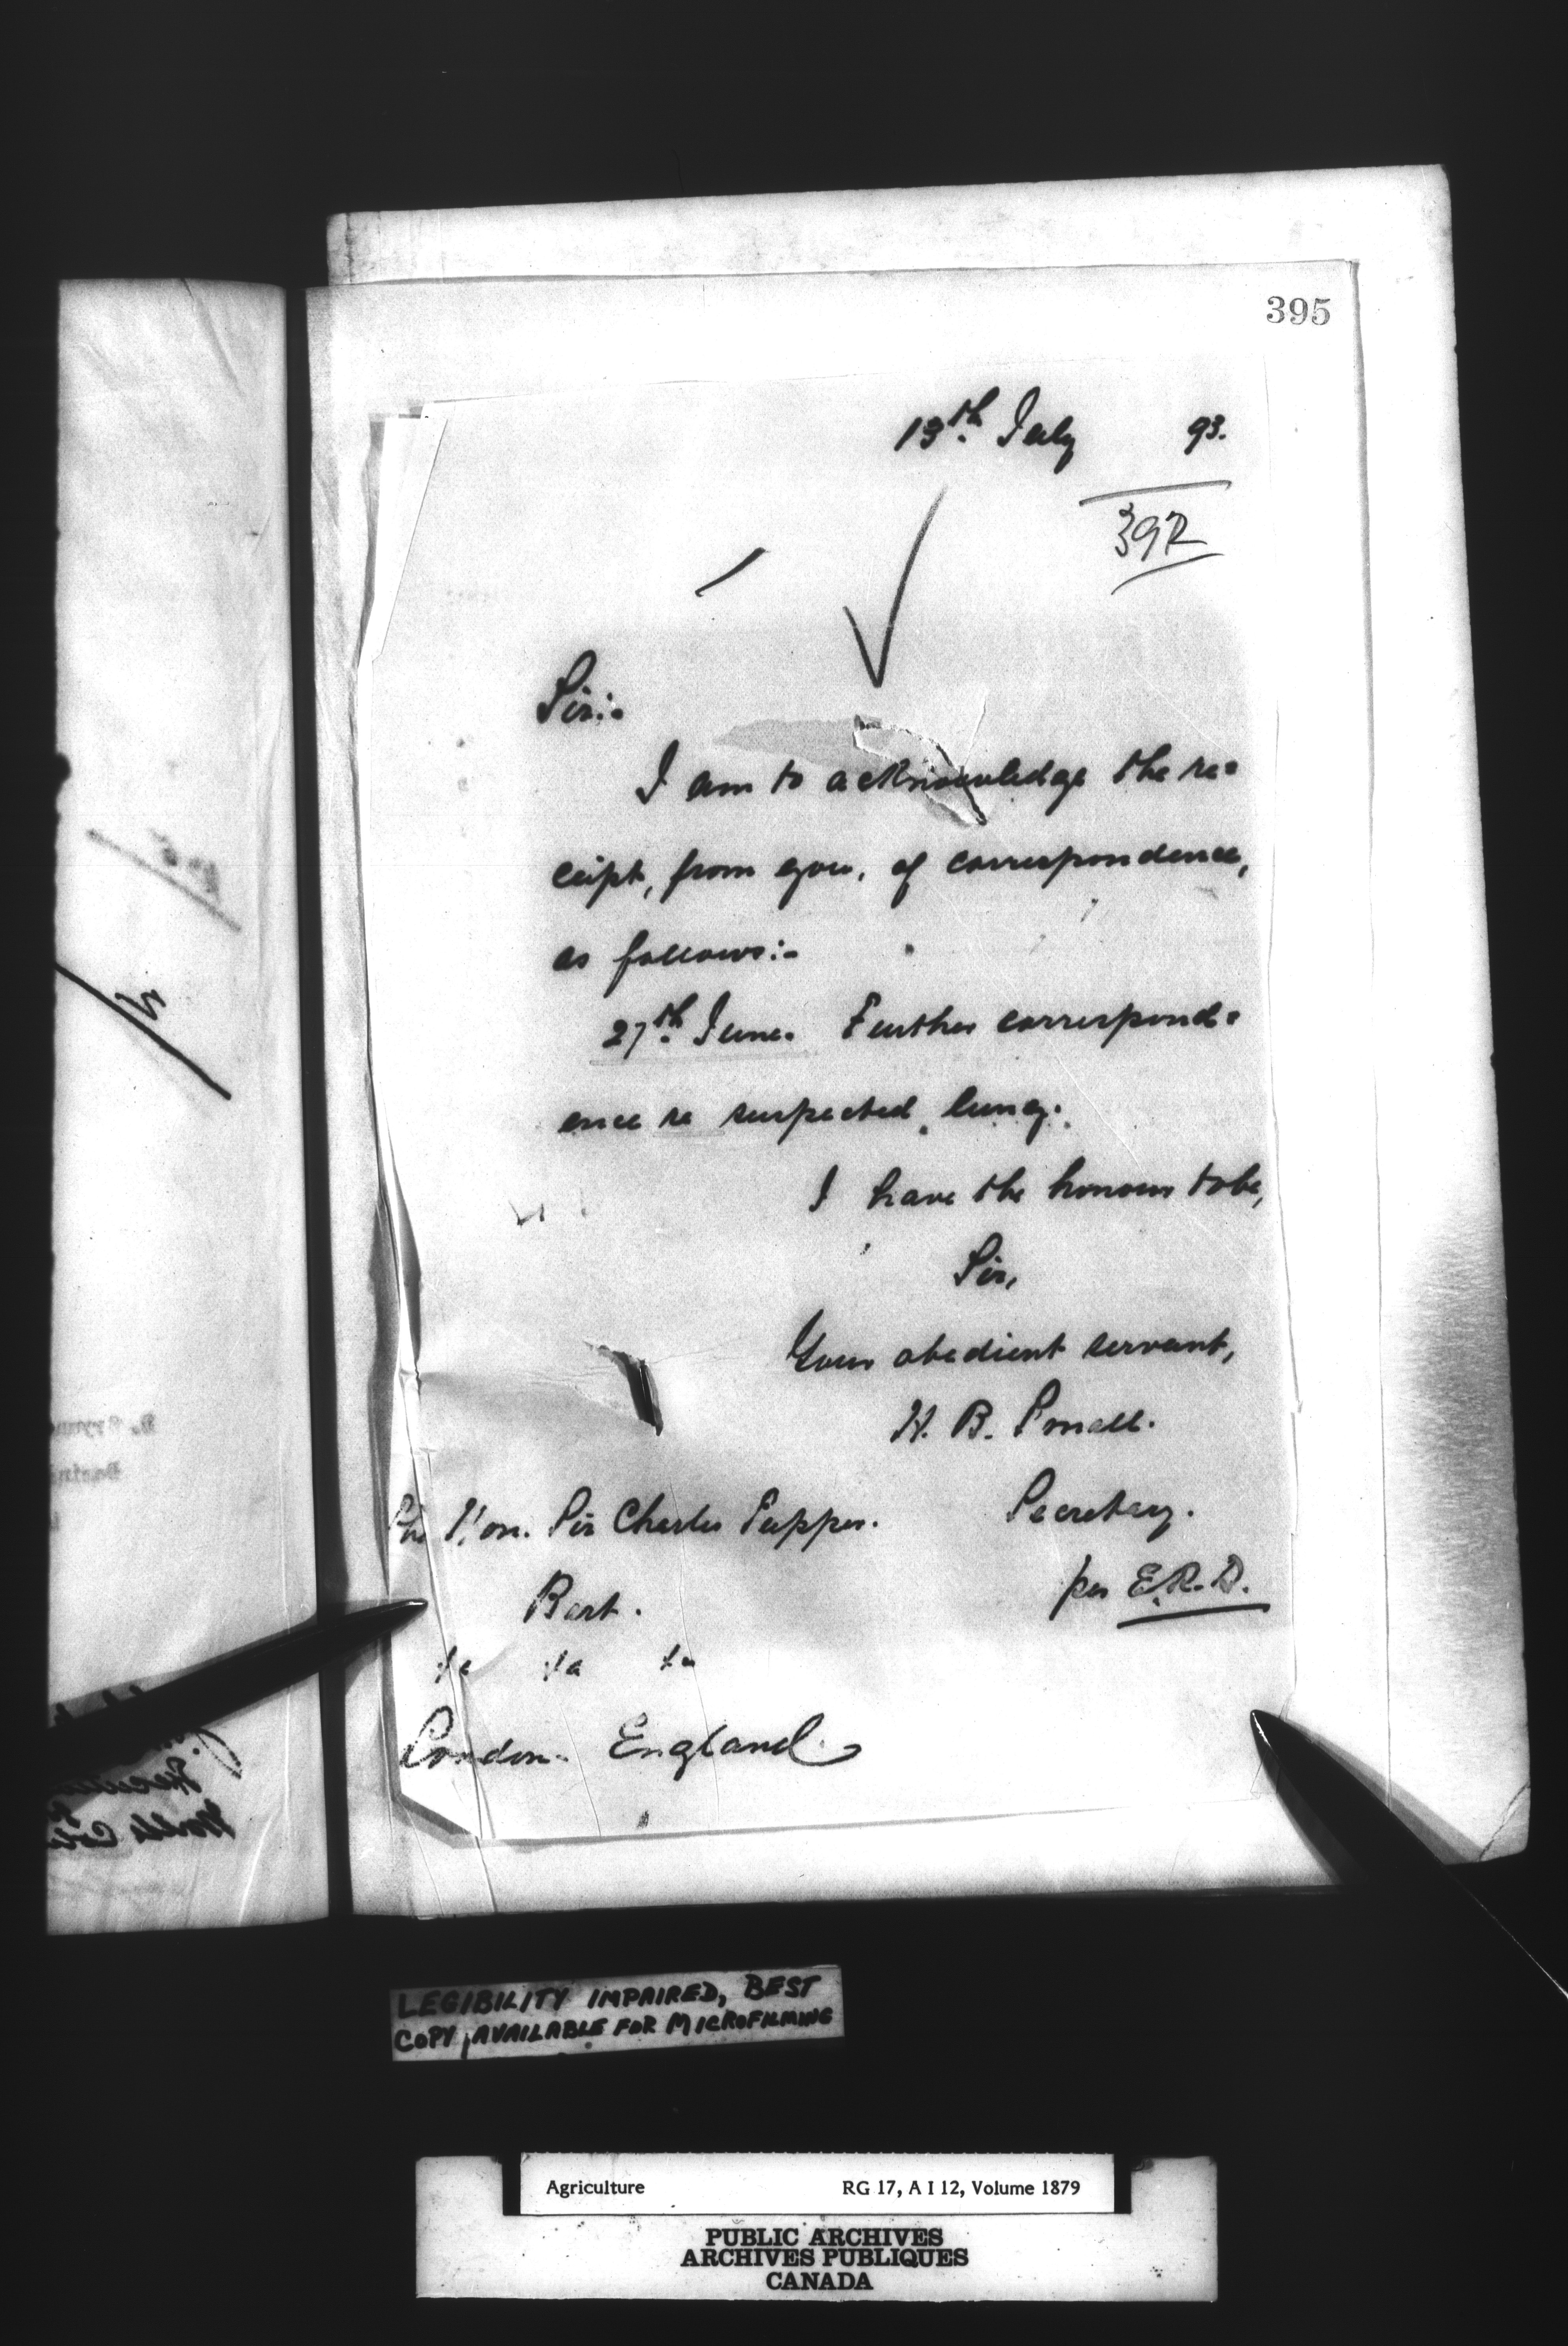 395
13th. July 93.
392
Sir:-
I am to acknowledge the re=
ceipt, from you, of correspondence,
as follows:-
27th. June. Further correspond=
ence re suspected lung.
I have the honour to be,
Sir,
Your obedient servant,
H. B. Small.
Secretary.
per E.R.D.
The Hon. Sir Charles Tupper.
Bart.
&c &c &c
London. England.
LEGIBILITY IMPAIRED, BEST
COPY AVAILABLE FOR MICROFILMING
Agriculture RG 17, A I 12, Volume 1879
PUBLIC ARCHIVES
ARCHIVES PUBLIQUES
CANADA